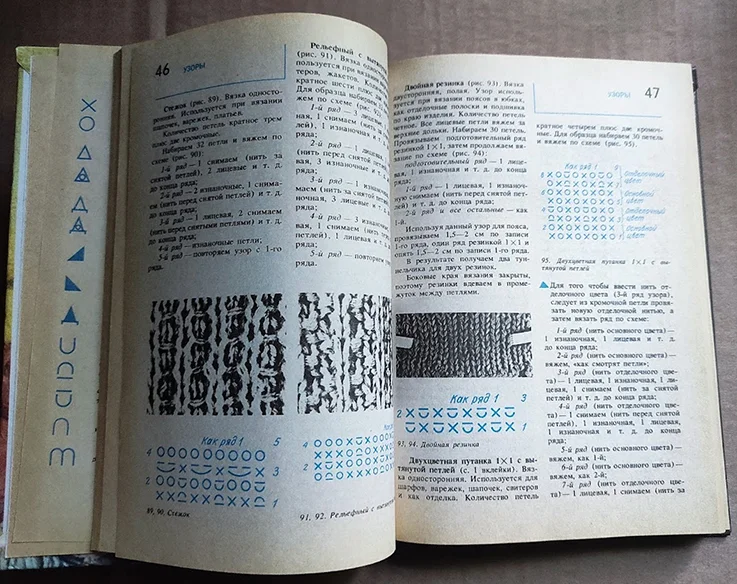 46 УЗОРЫ
Стежок (рис. 89). Вязка односто-
ронняя. Используется при вязании
шапочек, варежек, платьев.
Количество петель кратное трем
плюс две кромочные.
Набираем 32 петли и вяжем по
схеме (рис. 90):
1-й ряд — 1 снимаем (нить за
снятой петлей), 2 лицевые и т. д.
до конца ряда;
2-й ряд — 2 изнаночные, 1 снима-
ем (нить перед снятой петлей) и т. д.
до конца ряда;
3-й ряд — 1 лицевая, 2 снимаем
(нить перед снятыми петлями) и т. д.
до конца ряда;
4-й ряд — изнаночные петли;
5-й ряд — повторяем узор с 1-го
ряда.
Как ряд 1 5
4
3
2
1
89, 90. Стежок
Рельефный с вытяну
(рис. 91). Вязка односто
пользуется при вязании
теров, жакетов. Колич
кратное шести плюс две
Для образца набираем
жем по схеме (рис. 92)
1-й ряд — 1
ная, 1 изнаночная
ряда;
2-й ряд —
(нить перед снятой
вая, 3 изнаночные и т.
ряда;
3-й ряд — 1
маем (нить за снятой
ные, 1 лицевая и т. д.
4-й ряд — 3 изнан
вая, 1 снимаем (нить
петлей), 1 лицевая и
ряда;
5-й ряд — повторяем
ряда.
Как ряд
4
2
91, 92. Рельефный с вытян
Двойная резинка (рис. 93). Вязка
двусторонняя, полая. Узор исполь-
зуется при вязании поясов к юбкам,
как отделочные полоски и подшивка
по краю изделия. Количество петель
четное. Все лицевые петли вяжем за
верхние дольки. Набираем 30 петель.
Провязываем подготовительный ряд
резинкой 1×1, затем продолжаем вя-
зание по схеме (рис. 94):
подготовительный ряд — 1 лице-
вая, 1 изнаночная и т. д. до конца
ряда;
1-й ряд — 1 лицевая, 1 изнаноч-
ную снимаем (нить перед снятой
петлей) и т. д. до конца ряда;
2-й ряд и все остальные — как
1-й.
Используя данный узор для пояса,
провязываем 1,5—2 см по записи
1-го ряда, один ряд резинкой 1×1 и
опять 1,5—2 см по записи 1-го ряда.
В результате получаем два тун-
нельчика для двух резинок.
Боковые края вязания закрыты,
поэтому резинки вдеваем в проме-
жуток между петлями.
Как ряд 1 3
2
1
93, 94. Двойная резинка
Двухцветная путанка 1×1 с вы-
тянутой петлей (с. 1 вклейки). Вяз-
ка односторонняя. Используется для
шарфов, варежек, шапочек, свитеров
и как отделка. Количество петель
УЗОРЫ 47
кратное четырем плюс две кромоч-
ные. Для образца набираем 30 петель
и вяжем по схеме (рис. 95).
Как ряд 1 9
8 Отделочный
7 цвет
6 Основной
5 цвет
4 Отделочный
3 цвет
2 Основной
1 цвет
95. Двухцветная путанка 1×1 с вы-
тянутой петлей
Для того чтобы ввести нить от-
делочного цвета (3-й ряд узора),
следует из кромочной петли провя-
зать новую отделочной нитью, а
затем вязать ряд по схеме:
1-й ряд (нить основного цвета)—
1 изнаночная, 1 лицевая и т. д.
до конца ряда;
2-й ряд (нить основного цвета)—
вяжем, «как смотрят петли»;
3-й ряд (нить отделочного цве-
та)— 1 лицевая, 1 изнаночная, 1 ли-
цевая, 1 снимаем (нить за снятой
петлей) и т. д. до конца ряда;
4-й ряд (нить отделочного цве-
та)— 1 снимаем (нить перед снятой
петлей), 1 изнаночная, 1 лицевая,
1 изнаночная и т. д. до конца
ряда;
5-й ряд (нить основного цвета)—
вяжем, как 1-й;
6-й ряд (нить основного цвета)—
вяжем, как 2-й;
7-й ряд (нить отделочного цве-
та)— 1 лицевая, 1 снимаем (нить за